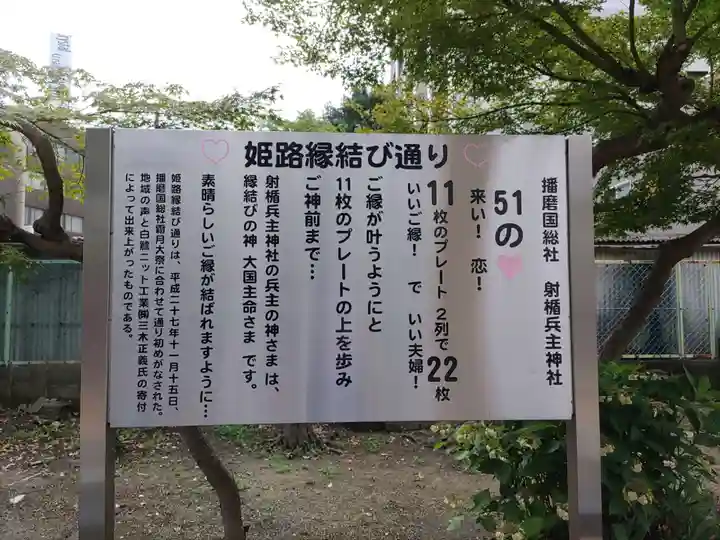 姫路縁結び通り
播磨国総社 射楯兵主神社
51の
来い! 恋!
11枚のプレート 2列で22枚
いいご縁! で いい夫婦!
ご縁が叶うようにと
11枚のプレートの上を歩み
ご神前まで…
射楯兵主神社の兵主の神さまは、
縁結びの神 大国主命さま です。
素晴らしいご縁が結ばれますように…
姫路縁結び通りは、平成二十七年十一月十五日、
播磨国総社霜月大祭に合わせて通り初めがなされた。
地域の声と白鷺ニット工業㈱三木正義氏の寄付
によって出来上がったものである。